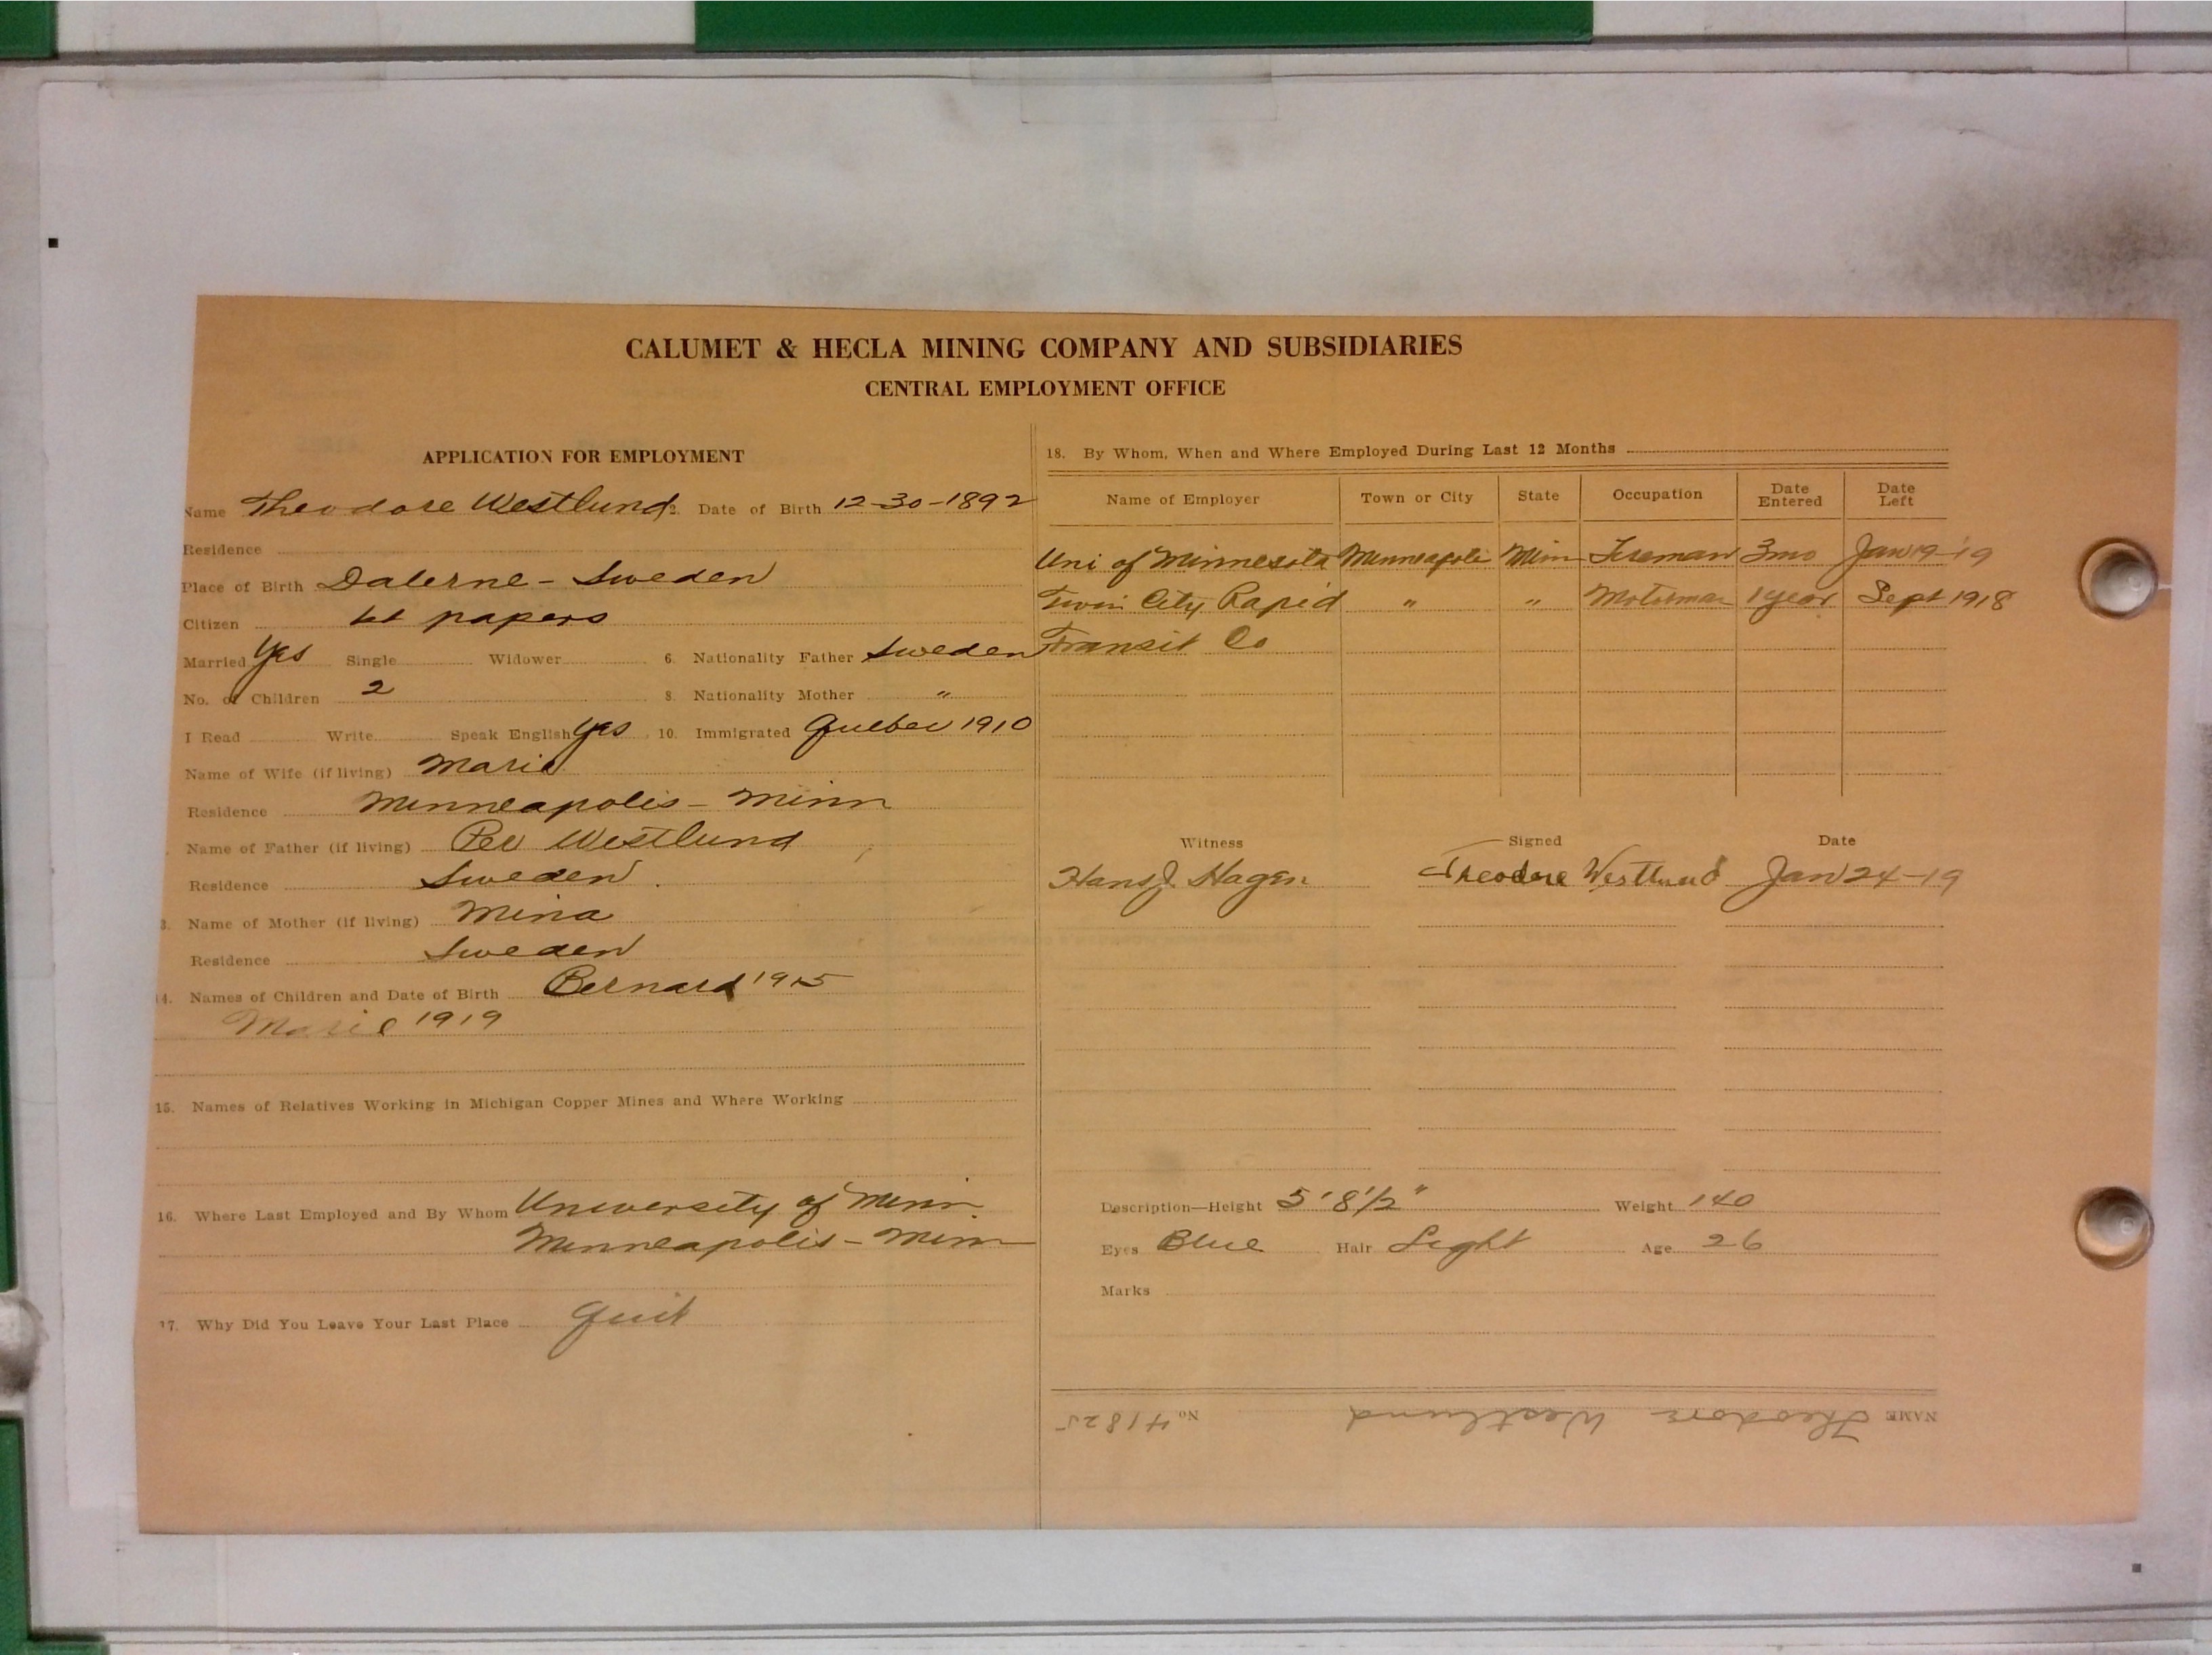 CALUMET & HECLA MINING COMPANY AND SUBSIDIARIES
CENTRAL EMPLOYMENT OFFICE
APPLICATION FOR EMPLOYMENT
Name Theodore Westlund 2. Date of Birth 12-30-1892
Residence
Place of Birth Dalerne - Sweden
Citizen 1st papers
Married Yes Single Widower 6. Nationality Father Sweden
No. of Children 2 8. Nationality Mother "
I Read Write Speak English Yes 10. Immigrated Quebec 1910
Name of Wife (if living) Marie
Residence Minneapolis - Minn
Name of Father (if living) Per Westlund
Residence Sweden
3. Name of Mother (if living) Mina
Residence Sweden
14. Names of Children and Date of Birth Bernard 1915
Marie 1919
15. Names of Relatives Working in Michigan Copper Mines and Where Working
16. Where Last Employed and By Whom University of Minn.
Minneapolis - Minn
17. Why Did You Leave Your Last Place Quit
18. By Whom, When and Where Employed During Last 12 Months
Name of Employer Town or City State Occupation Date Entered Date Left
Uni of Minnesota Minneapolis Minn Fireman 3mo Jan 19-19
Twin City Rapid " " Motorman 1 year Sept 1918
Transit Co
Witness Signed Date
Hans J. Hagen Theodore Westlund Jan 24-19
Description—Height 5' 8 1/2" Weight 140
Eyes Blue Hair Light Age 26
Marks
NAME Theodore Westlund No 41825